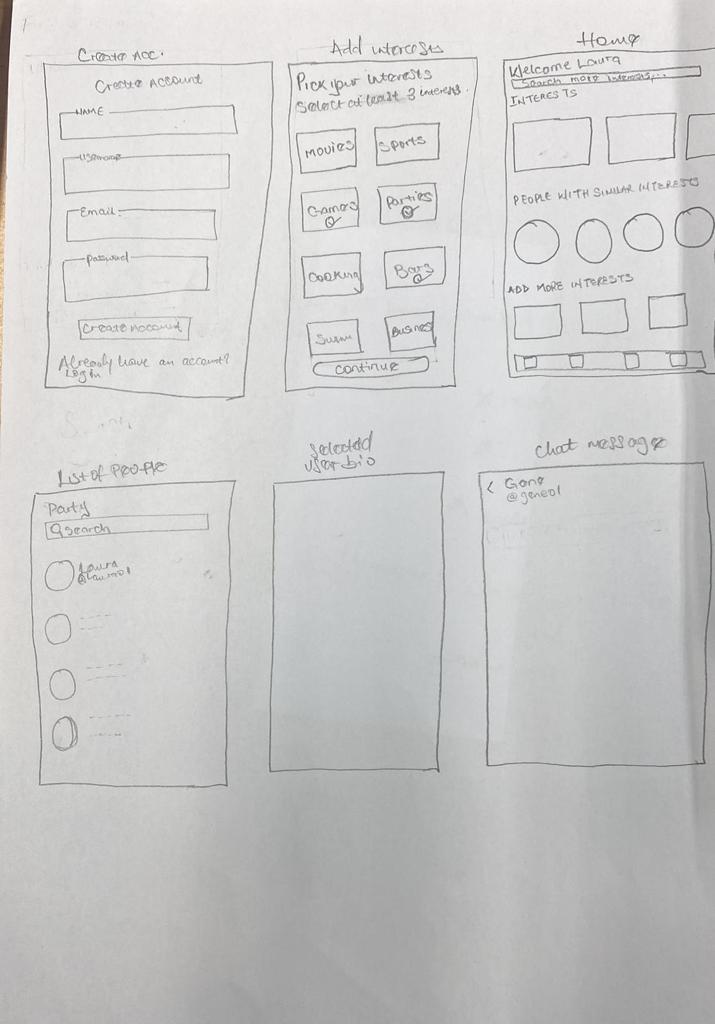 Create Acc.
Create Account
NAME
Username
Email:
Password
Create Account
Already have an account?
Log in
Add interests
Pick your interests
Select at least 3 interests.
Movies
Sports
Games
Parties
Cooking
Bars
Business
Continue
Home
Welcome Laura
Search more interests...
INTERESTS
PEOPLE WITH SIMILAR INTERESTS
ADD MORE INTERESTS
List of People
Party
Search
Laura
@Laura01
Selected
user bio
Chat messages
< Gene
@gene01